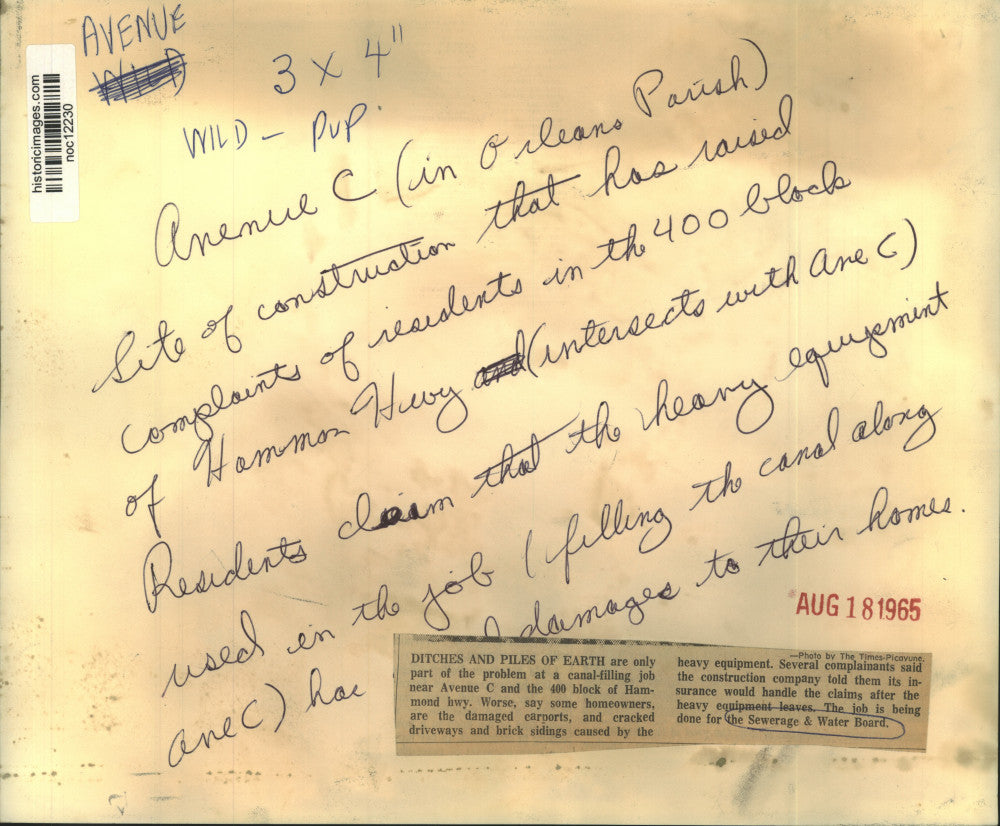 AVENUE
WILD
3 x 4"
WILD - PUP.
historicimages.com
noc12230
Avenue C (in Orleans Parish)
Site of construction that has raised
complaints of residents in the 400 block
of Hammon Hwy and (intersects with Ave C)
Residents claim that the heavy equipment
used in the job (filling the canal along
ave C) has damages to their homes.
AUG 18 1965
—Photo by The Times-Picayune.
DITCHES AND PILES OF EARTH are only
part of the problem at a canal-filling job
near Avenue C and the 400 block of Ham-
mond hwy. Worse, say some homeowners,
are the damaged carports, and cracked
driveways and brick sidings caused by the
heavy equipment. Several complainants said
the construction company told them its in-
surance would handle the claims after the
heavy equipment leaves. The job is being
done for the Sewerage & Water Board.